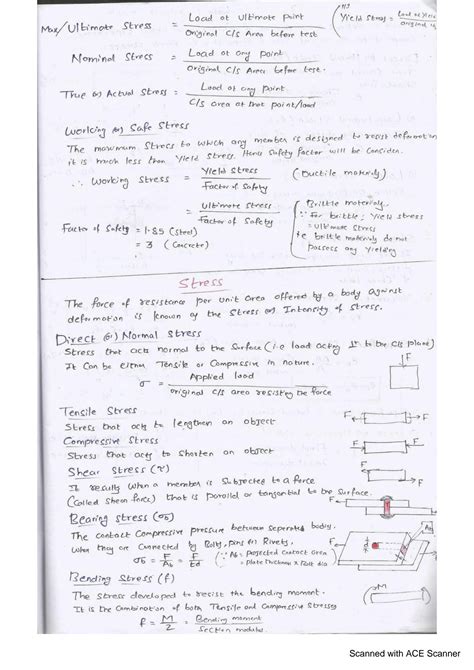 Max/Ultimate Stress = Load at Ultimate point / Original C/s Area before test
Yield Stress = Load at Yield / original
Nominal Stress = Load at any point / Original C/s Area before test.
True (or) Actual Stress = Load at any point / C/s area at that point/load
Working (or) Safe Stress
The maximum stress to which any member is designed to resist deformation
it is much less than Yield Stress. Hence Safety factor will be consider.
∴ Working Stress = Yield Stress / Factor of Safety (Ductile materials)
= Ultimate Stress / Factor of Safety
Factor of Safety = 1.85 (Steel)
= 3 (Concrete)
Brittle materials
∵ For brittle; Yield stress
= Ultimate Stress
brittle materials do not
possess any Yielding
Stress
The force of resistance per unit area offered by a body against
deformation is known as the Stress (or) Intensity of Stress.
Direct (or) Normal Stress
Stress that acts normal to the Surface (i.e load acting ⊥r to the C/s plane)
It Can be either Tensile or Compressive in nature.
σ = Applied load / original C/s area resisting the force
F
Tensile Stress
Stress that acts to lengthen an object
F F
Compressive Stress
Stress that acts to Shorten an object
F F
Shear Stress (τ)
It results when a member is Subjected to a force
(Called Shear force) that is parallel or tangential to the Surface.
Bearing Stress (σb)
The Contact Compressive pressure between Seperated bodies.
When they are Connected by Bolts, pins or Rivets,
σb = F/Ab = F/td (∵ Ab = projected Contact area
= plate thickness × Bolt dia
Ab
F
Bending Stress (f)
The Stress developed to resist the bending moment.
It is the Combination of both Tensile and Compressive Stresses
f = M/Z = Bending moment / Section modulus.
M
Scanned with ACE Scanner